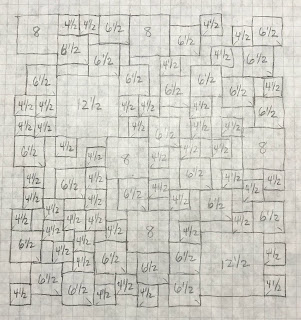 8 4½ 4½ 6½ 8 4½ 6½
6½ 6½ 6½ 4½
6½ 6½ 4½ 6½ 4½
4½ 4½ 12½ 4½ 4½ 4½ 6½ 6½
4½ 4½ 4½ 4½ 6½ 4½ 4½
6½ 4½ 4½ 8 4½ 4½ 4½ 8
4½ 6½ 4½ 6½ 4½ 4½
4½ 4½ 6½ 4½ 6½ 4½
4½ 4½ 4½ 4½ 8 4½ 4½ 6½
6½ 4½ 4½ 6½ 6½ 6½ 12½ 4½
4½ 6½ 6½ 4½ 4½ 6½ 4½